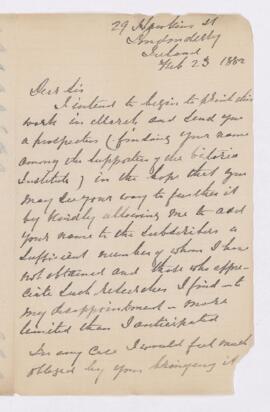 29 Hawkins St
Londonderry
Ireland
Feb 23 1882
Dear Sir
I intend to begin to print this
work in March and send you
a prospectus (finding your name
among the supporters of the Victoria
Institute) in the hope that you
may see your way to further it
by kindly allowing me to add
your name to the subscribers a
sufficient number of whom I have
not obtained and those who appre-
ciate such researches I find – to
my disappointment – more
limited than I anticipated
In any case I would feel much
obliged by your bringing it